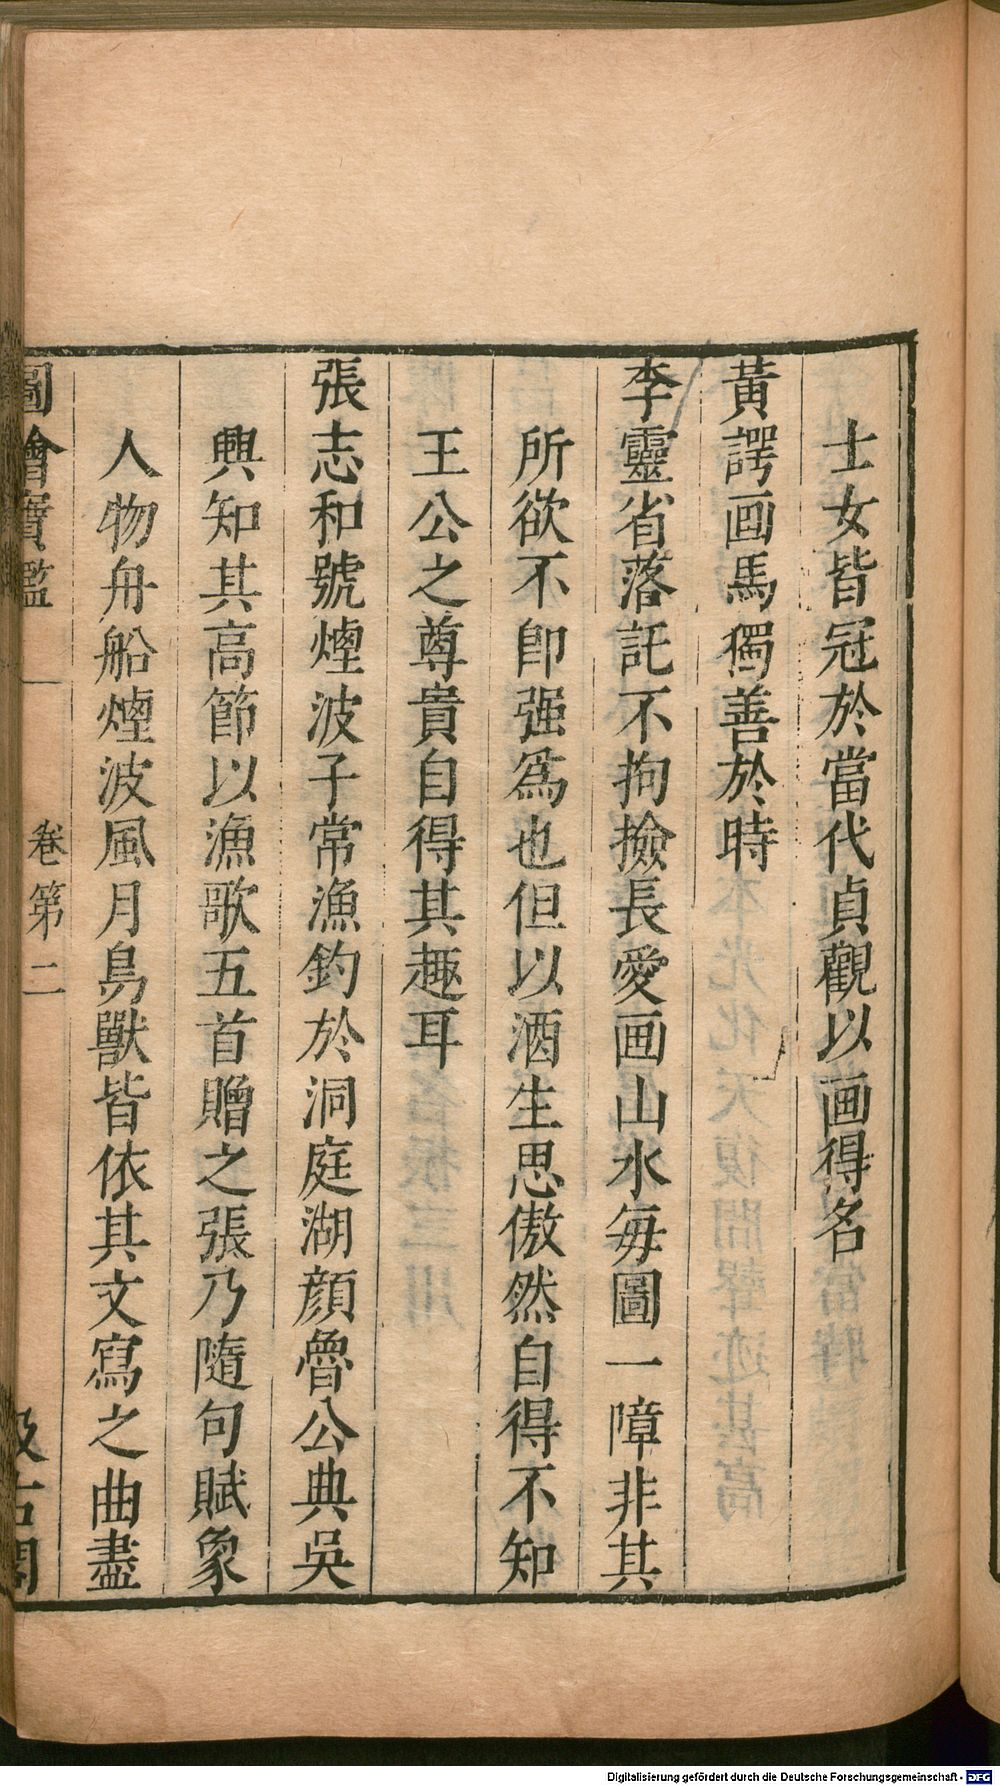 士女皆冠於當代貞觀以画得名
黃諤画馬獨善於時
李靈省落託不拘撿長愛画山水毎圖一障非其
所欲不卽强爲也但以酒生思傲然自得不知
王公之尊貴自得其趣耳
張志和號煙波子常漁釣於洞庭湖顏魯公典吳
興知其高節以漁歌五首贈之張乃隨句賦象
人物舟船煙波風月鳥獸皆依其文寫之曲盡
圖繪寶鑑 卷第二 汲古閣
Digitalisierung gefördert durch die Deutsche Forschungsgemeinschaft - DFG